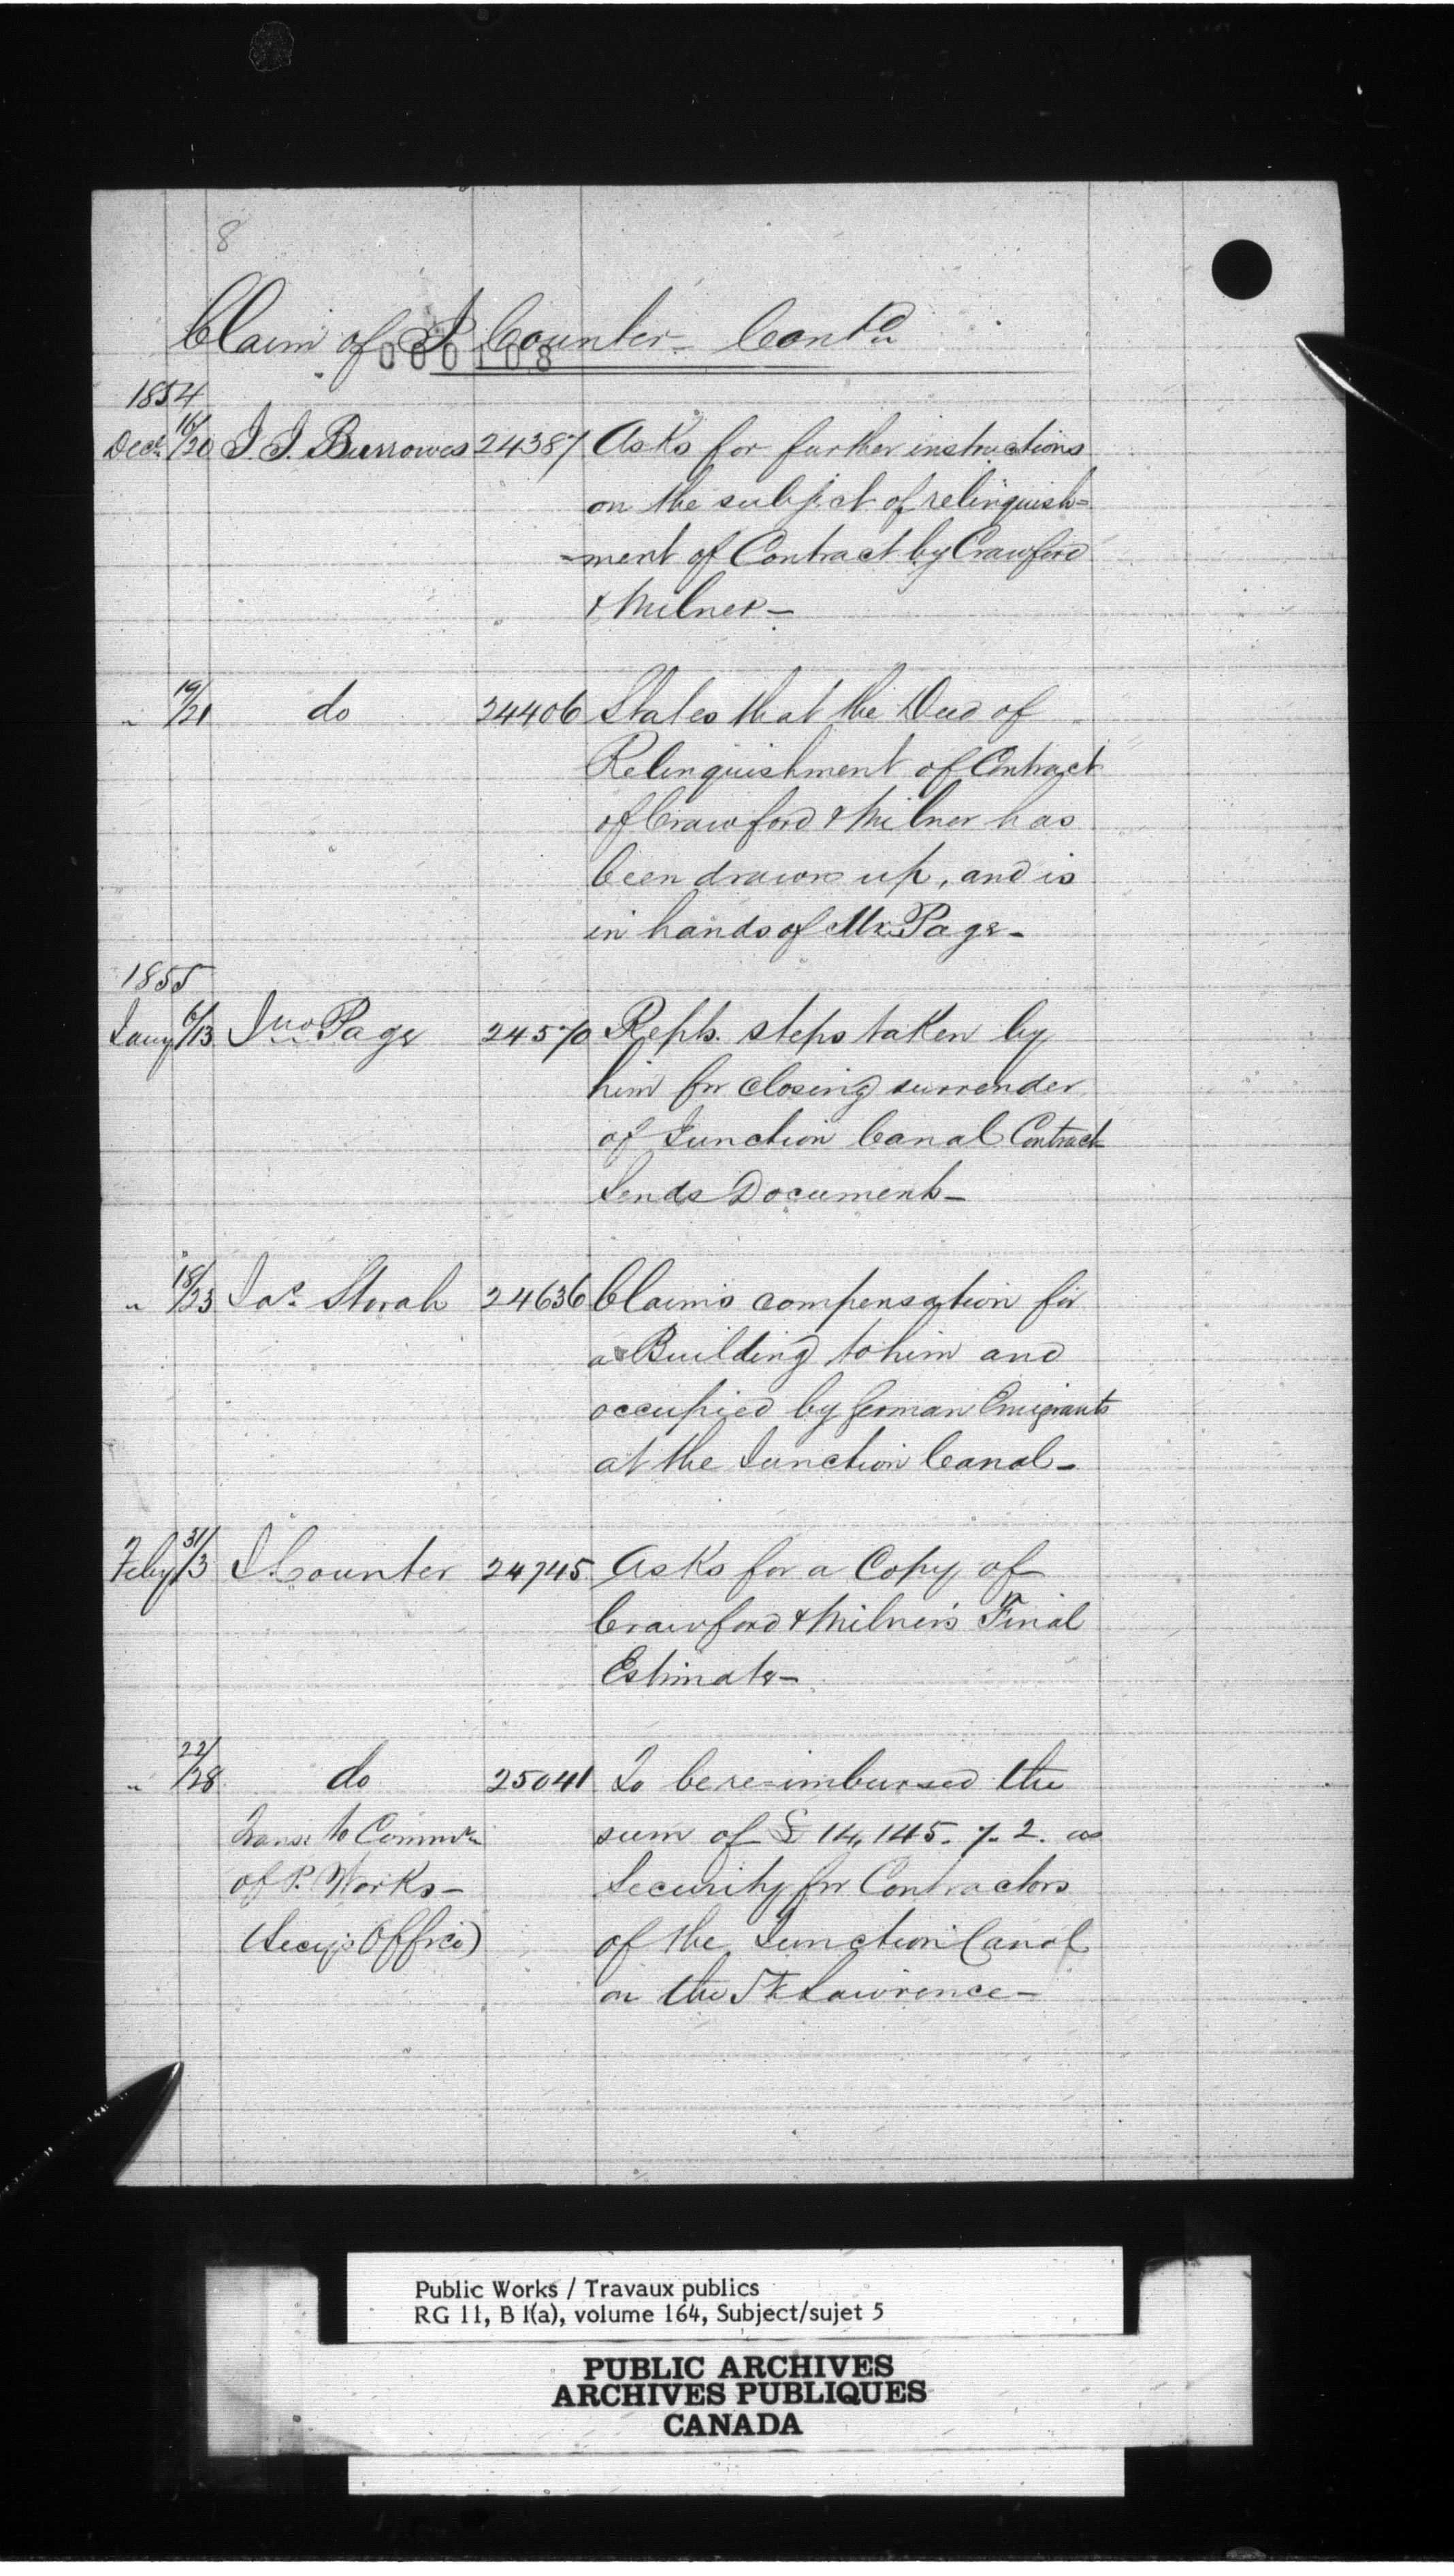 8
Claim of J Counter - Contd
000108
1854
Decr 16/20 J. J. Burrowes 24387 Asks for further instructions
on the subject of relinquish=
=ment of Contract by Crawford
& Milner -
" 19/21 do 24406 States that the Deed of
Relinquishment of Contract
of Crawford & Milner has
been drawn up, and is
in hands of Mr. Page -
1855
Jany 6/13 Jno Page 24570 Repts. steps taken by
him for closing surrender
of Junction Canal Contract
Sends Documents -
" 18/23 Jas. Storah 24636 Claims compensation for
a Building to him and
occupied by German Emigrants
at the Junction Canal -
Feby 31/3 J. Counter 24745 Asks for a Copy of
Crawford & Milner's Final
Estimate -
" 22/28 do 25041 To be re=imbursed the
Transd to Commr sum of £ 14,145. 7. 2. as
of P. Works - Security for Contractors
(Secy's Office) of the Junction Canal
on the St Lawrence -
Public Works / Travaux publics
RG 11, B 1(a), volume 164, Subject/sujet 5
PUBLIC ARCHIVES
ARCHIVES PUBLIQUES
CANADA